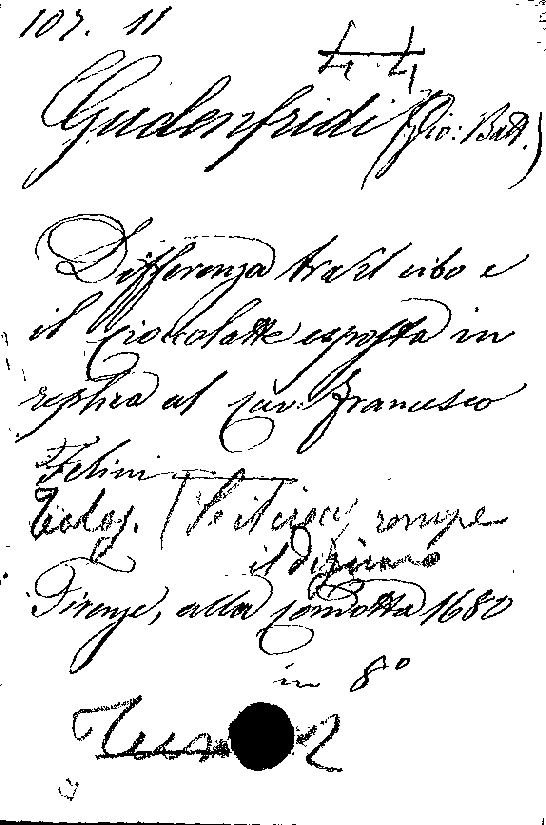 107. 11
44
Gudenfridi (Gio: Batt.)
Differenza tra 'l cibo e
il Cioccolatte esposta in
replica al Cav. Francesco
Felini
Teolog. (Se il ciocc. rompe
il digiuno
Firenze, alla Condotta 1680
in 8º